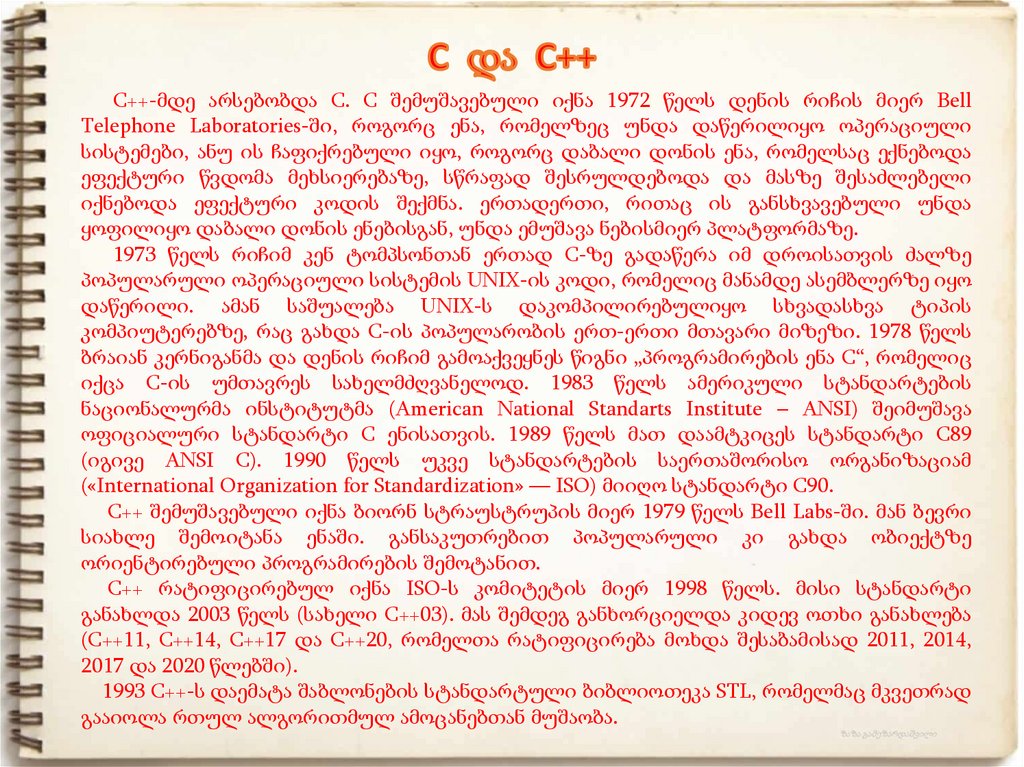 C და C++
C++-მდე არსებობდა C. C შემუშავებული იქნა 1972 წელს დენის რიჩის მიერ Bell
Telephone Laboratories-ში, როგორც ენა, რომელზეც უნდა დაწერილიყო ოპერაციული
სისტემები, ანუ ის ჩაფიქრებული იყო, როგორც დაბალი დონის ენა, რომელსაც ექნებოდა
ეფექტური წვდომა მეხსიერებაზე, სწრაფად შესრულდებოდა და მასზე შესაძლებელი
იქნებოდა ეფექტური კოდის შექმნა. ერთადერთი, რითაც ის განსხვავებული უნდა
ყოფილიყო დაბალი დონის ენებისგან, უნდა ემუშავა ნებისმიერ პლატფორმაზე.
1973 წელს რიჩიმ კენ ტომპსონთან ერთად C-ზე გადაწერა იმ დროისათვის ძალზე
პოპულარული ოპერაციული სისტემის UNIX-ის კოდი, რომელიც მანამდე ასემბლერზე იყო
დაწერილი. ამან საშუალება UNIX-ს დაკომპილირებულიყო სხვადასხვა ტიპის
კომპიუტერებზე, რაც გახდა C-ის პოპულარობის ერთ-ერთი მთავარი მიზეზი. 1978 წელს
ბრაიან კერნიგანმა და დენის რიჩიმ გამოაქვეყნეს წიგნი „პროგრამირების ენა C“, რომელიც
იქცა C-ის უმთავრეს სახელმძღვანელოდ. 1983 წელს ამერიკული სტანდარტების
ნაციონალურმა ინსტიტუტმა (American National Standarts Institute – ANSI) შეიმუშავა
ოფიციალური სტანდარტი C ენისათვის. 1989 წელს მათ დაამტკიცეს სტანდარტი C89
(იგივე ANSI C). 1990 წელს უკვე სტანდარტების საერთაშორისო ორგანიზაციამ
(«International Organization for Standardization» — ISO) მიიღო სტანდარტი C90.
C++ შემუშავებული იქნა ბიორნ სტრაუსტრუპის მიერ 1979 წელს Bell Labs-ში. მან ბევრი
სიახლე შემოიტანა ენაში. განსაკუთრებით პოპულარული კი გახდა ობიექტზე
ორიენტირებული პროგრამირების შემოტანით.
C++ რატიფიცირებულ იქნა ISO-ს კომიტეტის მიერ 1998 წელს. მისი სტანდარტი
განახლდა 2003 წელს (სახელი C++03). მას შემდეგ განხორციელდა კიდევ ოთხი განახლება
(C++11, C++14, C++17 და C++20, რომელთა რატიფიცირება მოხდა შესაბამისად 2011, 2014,
2017 და 2020 წლებში).
1993 C++-ს დაემატა შაბლონების სტანდარტული ბიბლიოთეკა STL, რომელმაც მკვეთრად
გააიოლა რთულ ალგორითმულ ამოცანებთან მუშაობა.
ზაზა გამეზარდაშვილი